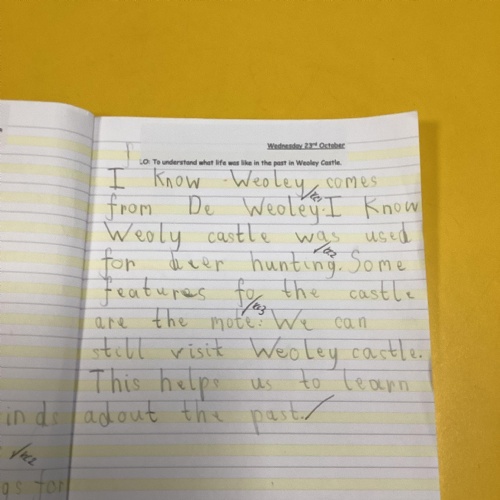 Wednesday 23rd October
LO: To understand what life was like in the past in Weoley Castle.
I Know Weoley comes
from De Weoley. I Know
Weoly castle was used
for deer hunting. Some
features fo the castle
are the mote. We can
still visit Weoley castle.
This helps us to learn
adout the past.
inds
gs for